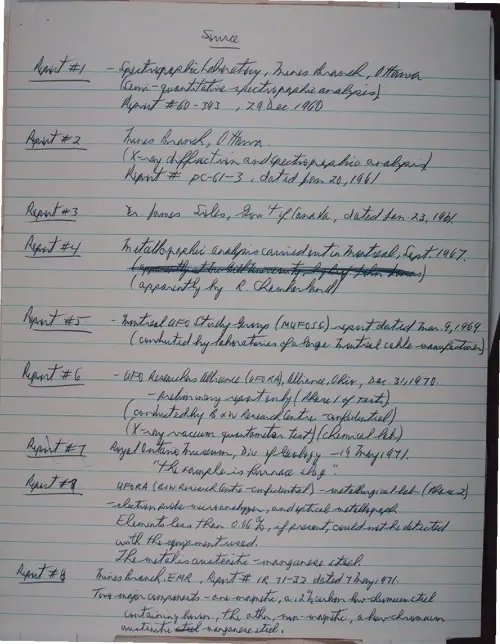 Source
Report #1 - Spectrographic Laboratory, Mines Branch, Ottawa
(Semi-quantitative spectrographic analysis)
Report #60-393, 29 Dec. 1960
Report #2 Mines Branch, Ottawa.
(X-ray diffraction and spectrographic analysis)
Report # PC-61-3, dated Jan 20, 1961
Report #3 Dr. James Soles, Gov't of Canada, dated Jan. 23, 1961
Report #4 Metallographic analysis carried out in Montreal, Sept 1967.
(apparently by R. Chamberland)
Report #5 - Montreal UFO Study Group (MUFOSG) - report dated Mar. 9, 1969
(conducted by laboratories of a large Montreal cable manufacturer)
Report #6 - UFO Research Alliance (UFORA), Alliance, Ohio, Dec 31, 1970.
- preliminary report only (Phase 1 of tests)
(conducted by B & W Research Centre - confidential)
(X-ray vacuum quantometer test) (Chemical Lab)
Report #7 Royal Ontario Museum, Div of Geology - 19 May, 1971.
"The sample is furnace slag"
Report #8 UFORA (B&W Research Centre - confidential) - metallurgical lab - (Phase 2)
- electron probe microanalyzer, and optical metallograph
Elements less than 0.06%, if present, could not be detected
with the equipment used.
The metal is austenitic - manganese steel.
Report #8 Mines Branch, EMR, Report # IR 71-32 dated 7 May, 1971.
Two major components - one magnetic, a 1.2% carbon low-chromium steel
containing , the other, non-magnetic, a low-chromium
austenitic manganese steel.